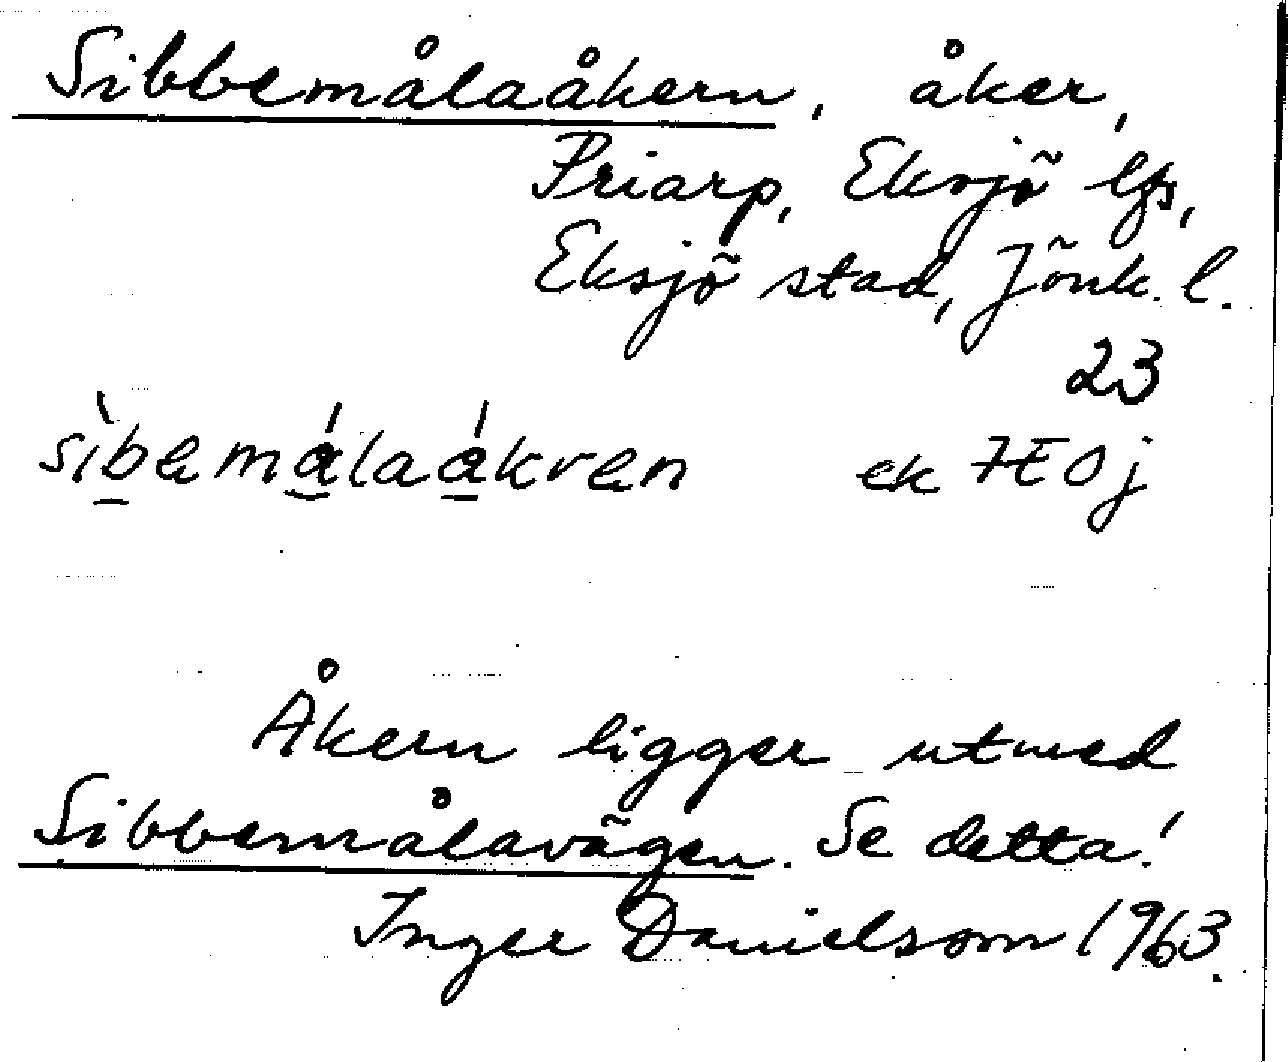 Sibbemålaåkern, åker,
Priarp, Eksjö lfs,
Eksjö stad, Jönk. l.
23
sìbemálaákren ek 7E0j
Åkern ligger utmed
Sibbemålavägen. Se detta!
Inger Danielsom 1963.